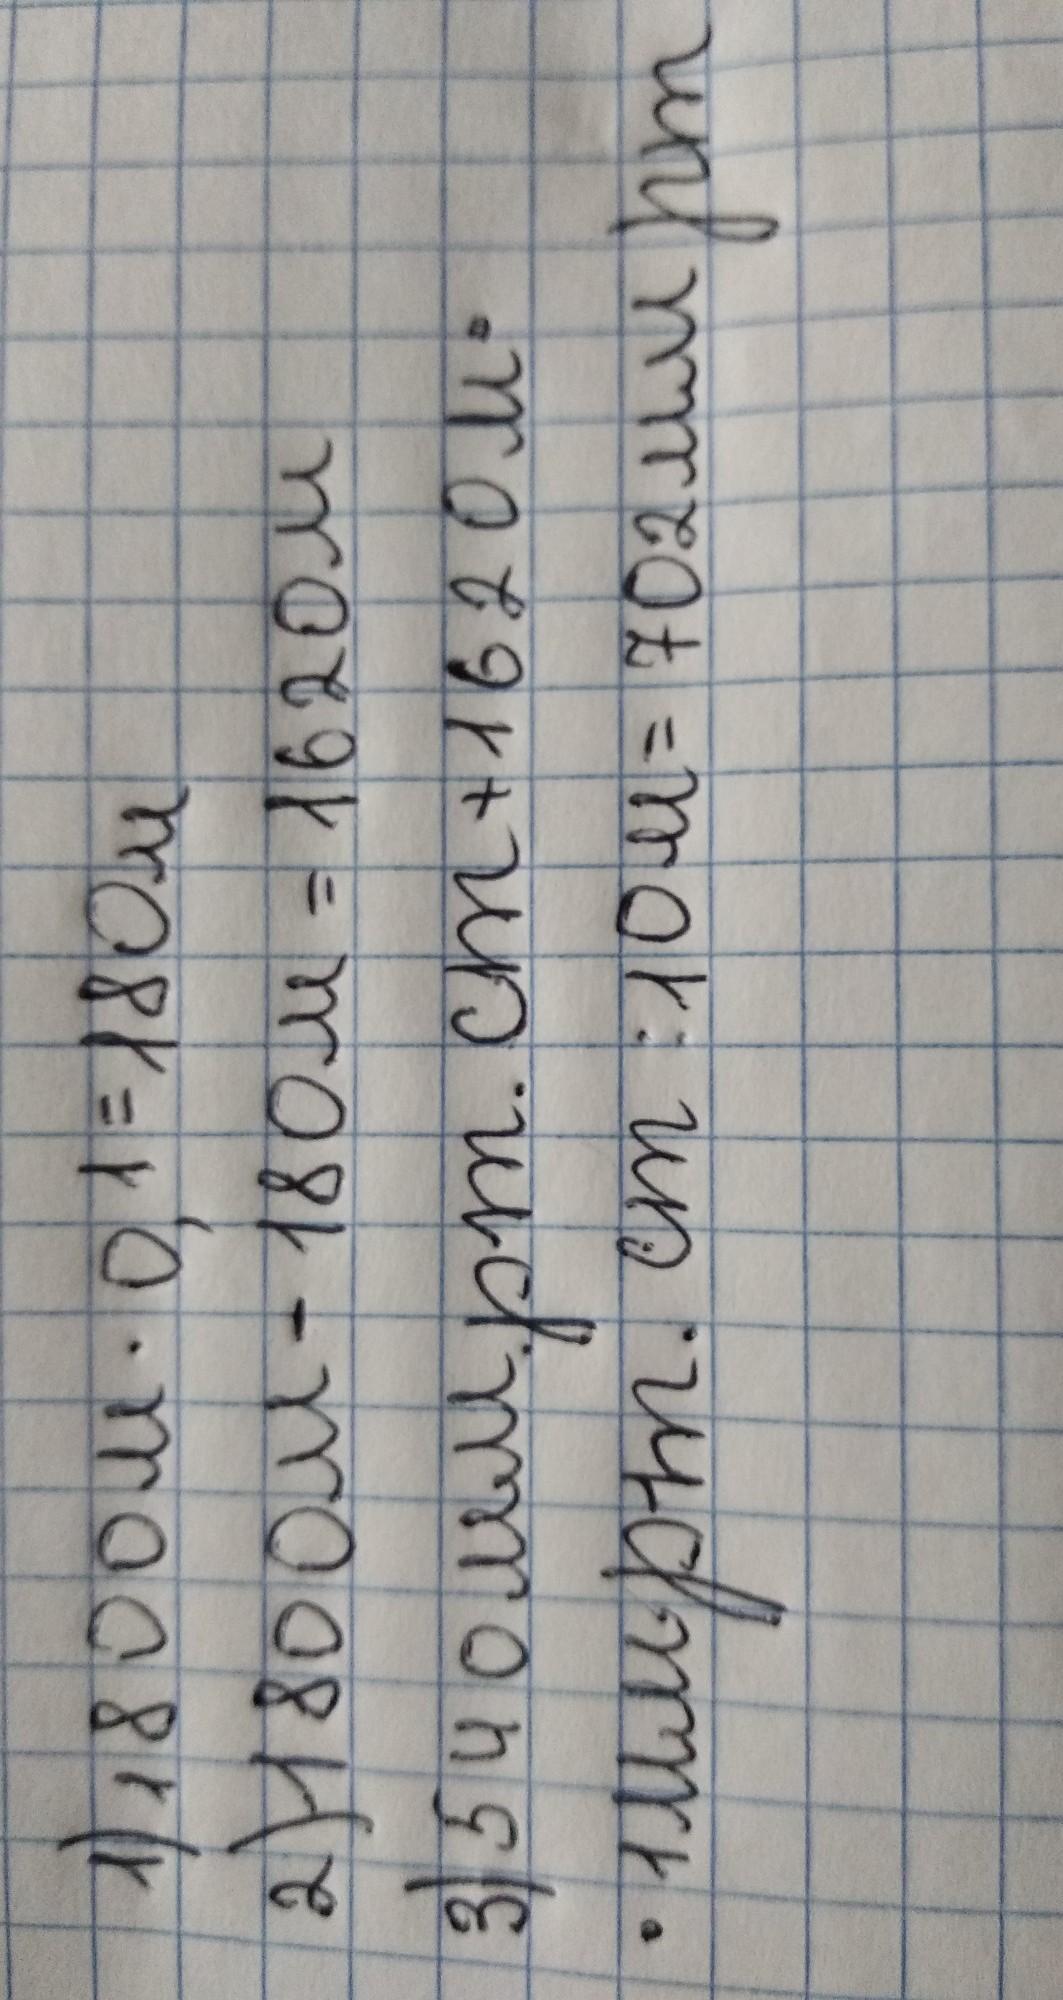 1) 1800м · 0,1 = 180м
2) 1800м - 180м = 1620м
3) 540мм.рт. ст + 1620м ·
· 1мм.рт. ст : 10м = 702мм рт